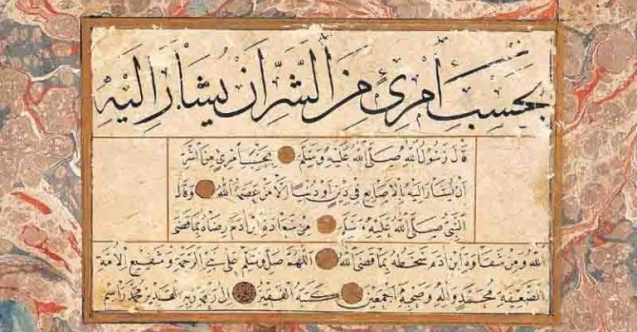 بحسب امرئ من الشر ان يشار اليه
قال رسول الله صلى الله عليه وسلم بحسب امرئ من الشر
ان يشار اليه بالاصابع في دين او دنيا الا من عصمه الله وقال
النبي صلى الله عليه وسلم من سعادة ابن ادم رضاه بما قضى
الله ومن شقاوة ابن ادم سخطه بما قضى الله اللهم صل وسلم على نبي الرحمة وشفيع الامة
محمد واله وصحبه اجمعين كتبه الفقير